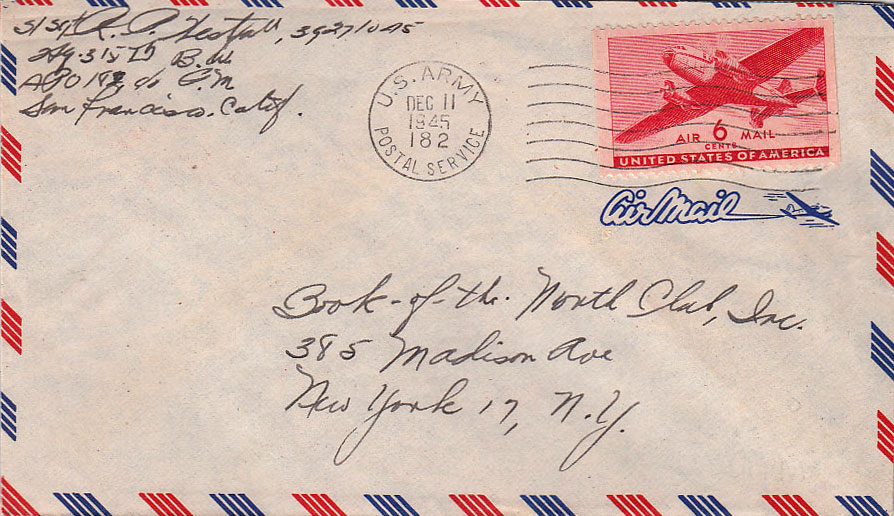 S/Sgt R. A. 39271045
Hq. 315 B.W.
APO 182 c/o P.M
San Francisco. Calif.
U.S. ARMY
DEC 11
1945
182
POSTAL SERVICE
AIR 6 MAIL
CENTS
UNITED STATES OF AMERICA
Air Mail
Book-of-the-Month Club, Inc.
385 Madison Ave
New York 17, N.Y.